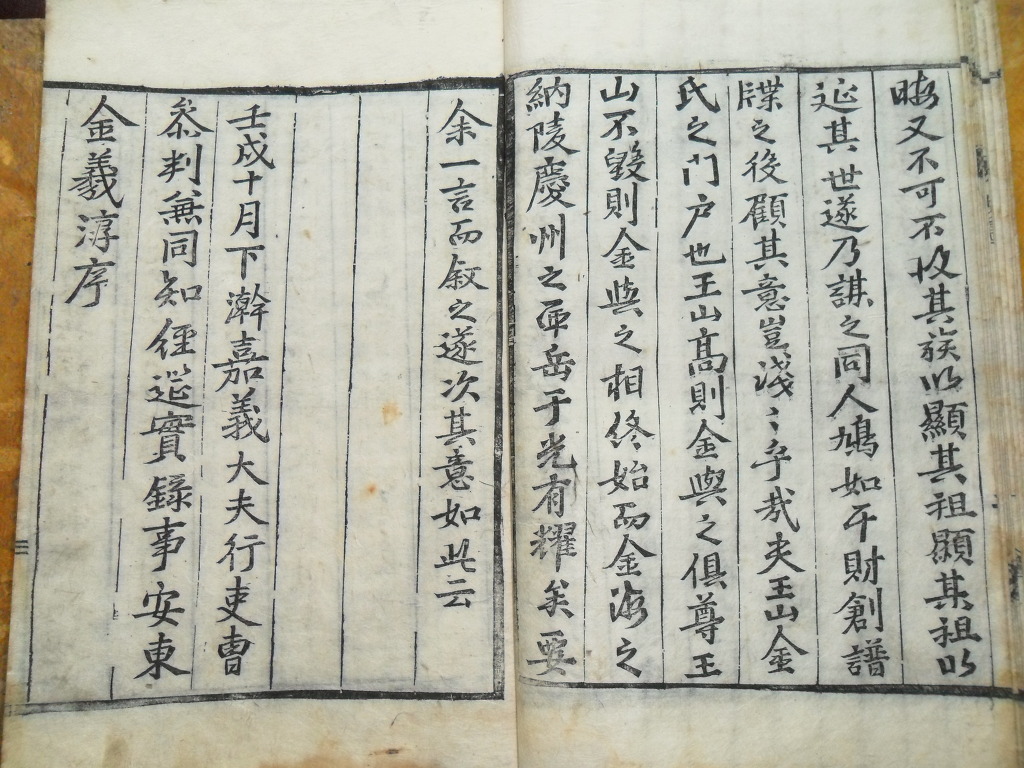 晦又不可不收其族以顯其祖顯其祖以
延其世遂乃謀之同人鳩如干財創譜
牒之後顧其意豈淺〻乎哉夫王山金
氏之门户也王山高則金與之俱尊王
山不毀則金與之相終始而金海之
納陵慶州之䧺岳于光有耀矣要
余一言而叙之遂次其意如此云
壬戌十月下澣嘉義大夫行吏曹
叅判兼同知經筵實錄事安東
金羲淳序